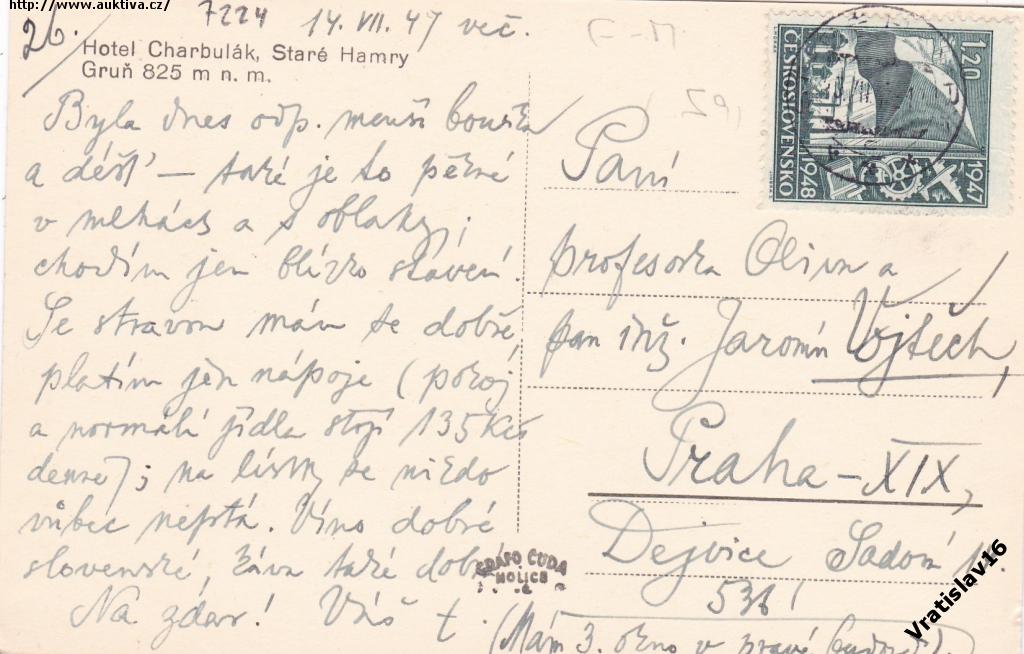 http://www.auktiva.cz/
26. 7224 14. VII. 47 več.
Hotel Charbulák, Staré Hamry
Gruň 825 m n. m.
Byla dnes odp. menší bouřka
a déšť – také je to pěkné
v mlhách a s oblaky;
chodím jen blízko stavení.
Se stravou mám se dobře
platím jen nápoje (pokoj
a normální jídla stojí 135 Kčs
denně); na lístky se nikdo
vůbec neptá. Víno dobré
slovenské, káva také dobrá
Na zdar! Váš t.
(Mám 3. okno v pravé
Paní
profesorka Oliva a
pan inž. Jaromír Vojtěch,
Praha – XIX,
Dejvice Sadová
536
1.20
ČESKOSLOVENSKO
1947
1948
ČUDA
HOLICE
Vratislav16